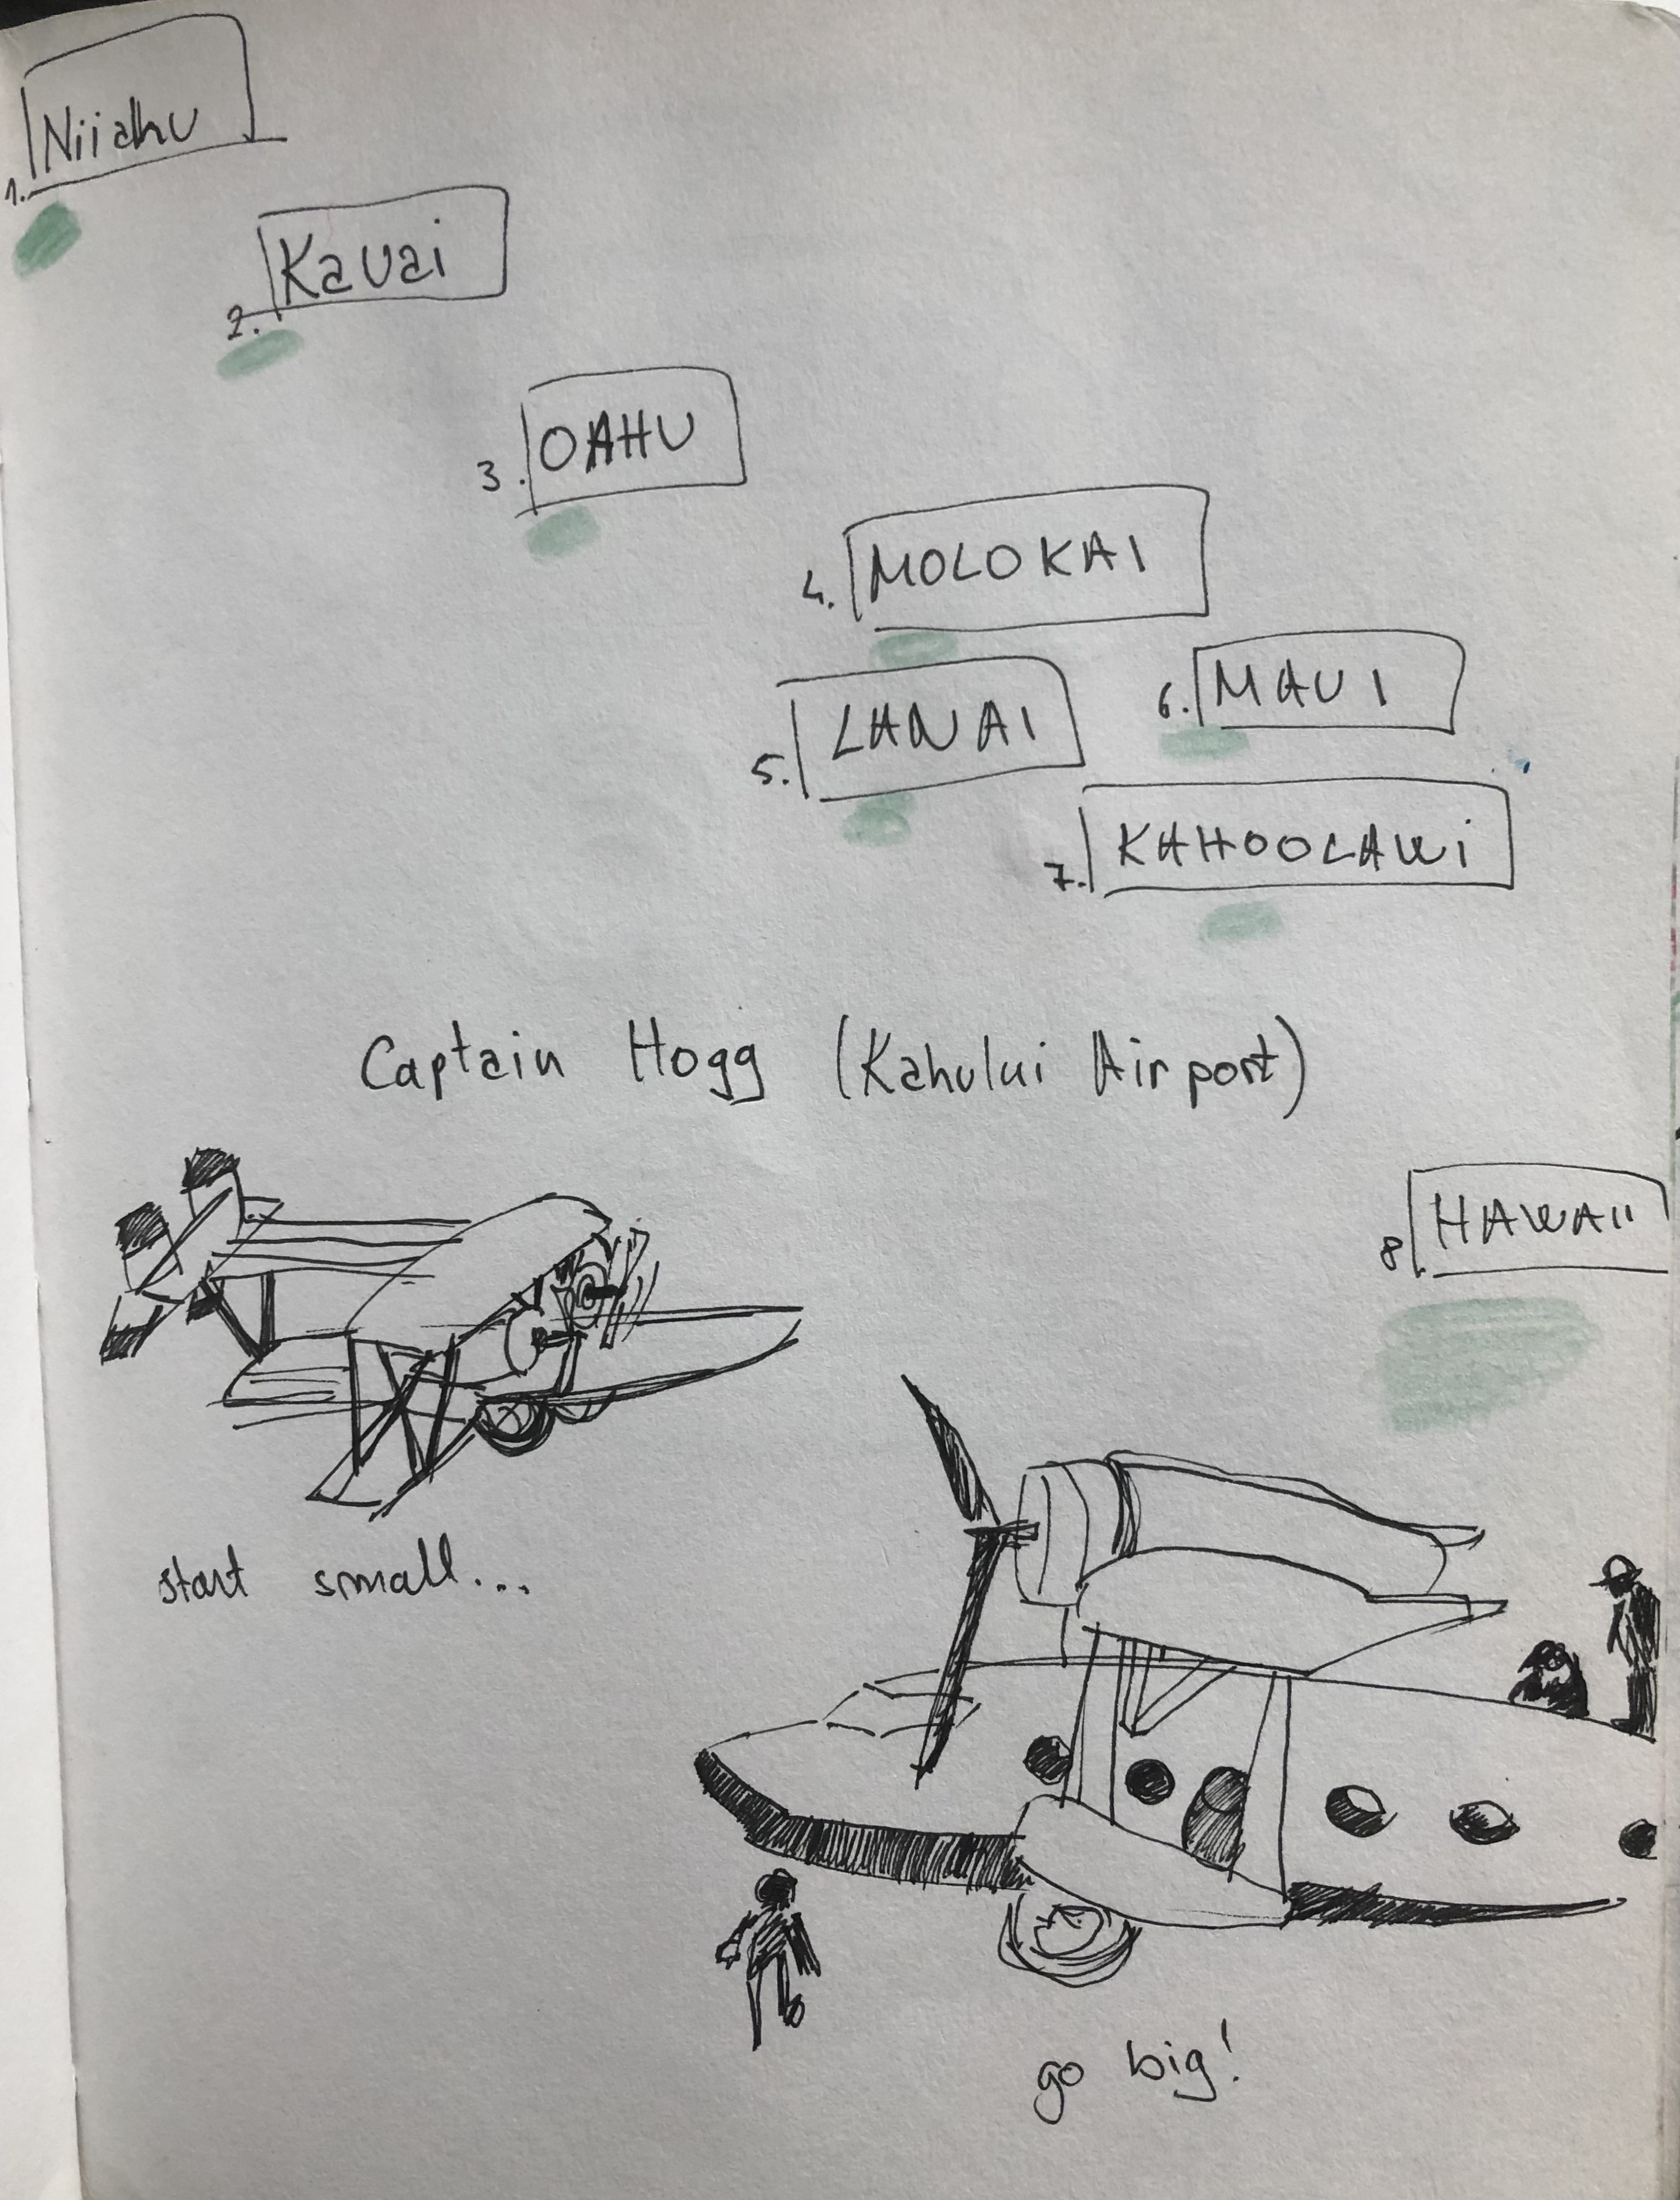 1. Niiahu
2. Kauai
3. OAHU
4. MOLOKAI
5. LANAI
6. MAUI
7. KAHOOLAWi
Captain Hogg (Kahului Airport)
8. HAWAII
start small...
go big!